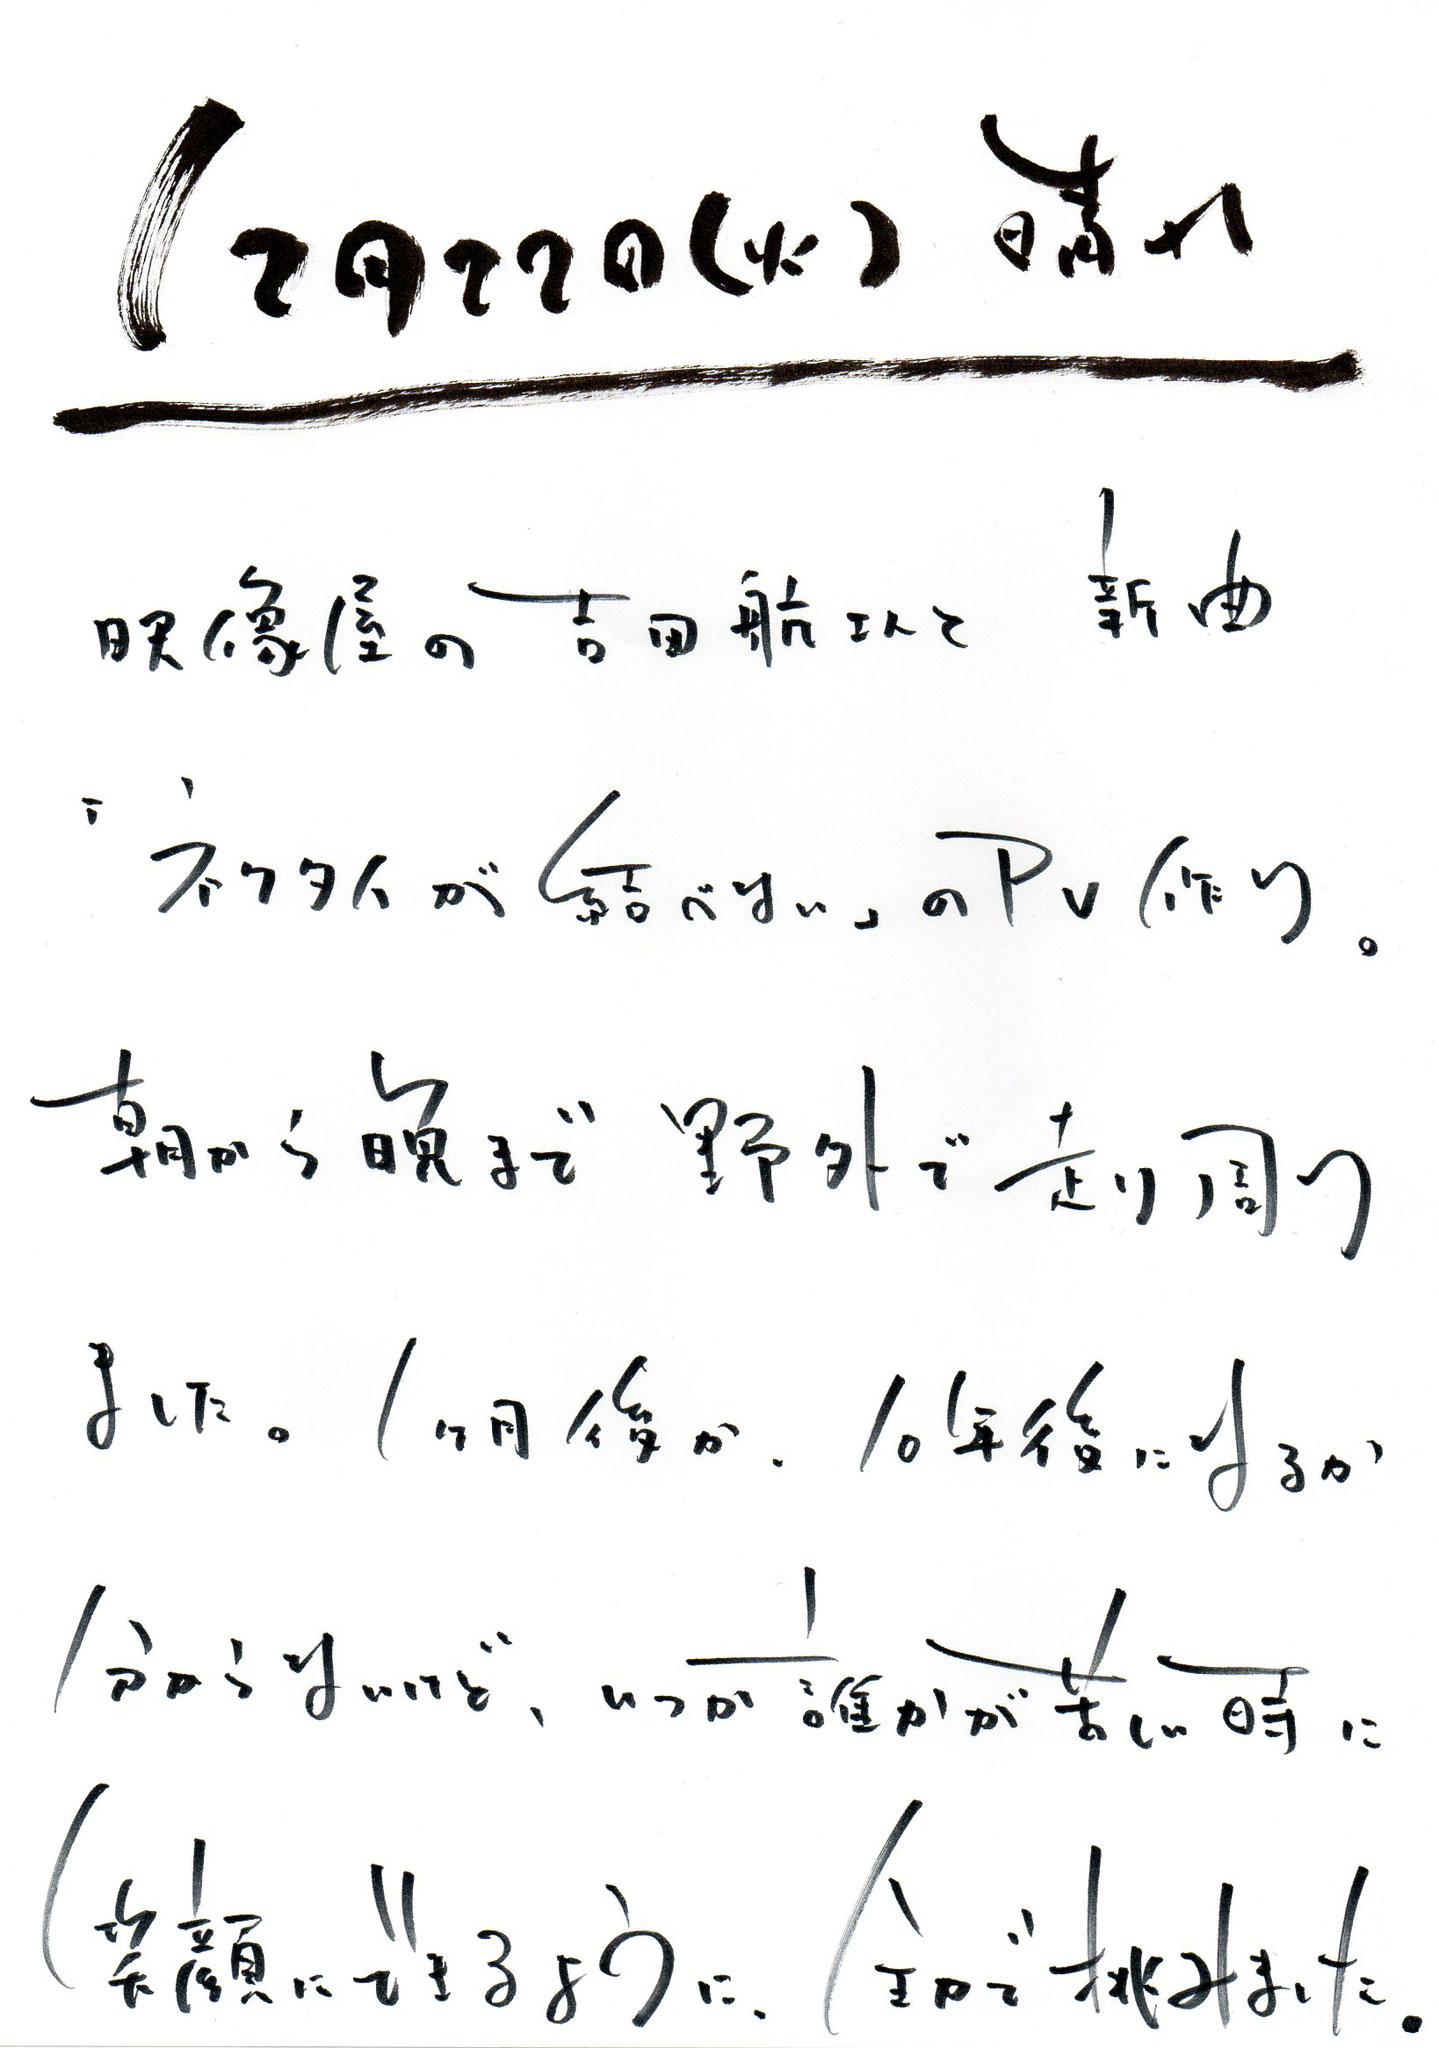 12月22日(火) 晴れ
映像屋の吉田航以と 新曲
「ネクタイが結べない」のPV作り。
朝から晩まで野外で走り周り
ました。1ヶ月後か、10年後になるか
分からないけど、いつか誰かが苦しい時に
笑顔にできるように、全力で挑みました。